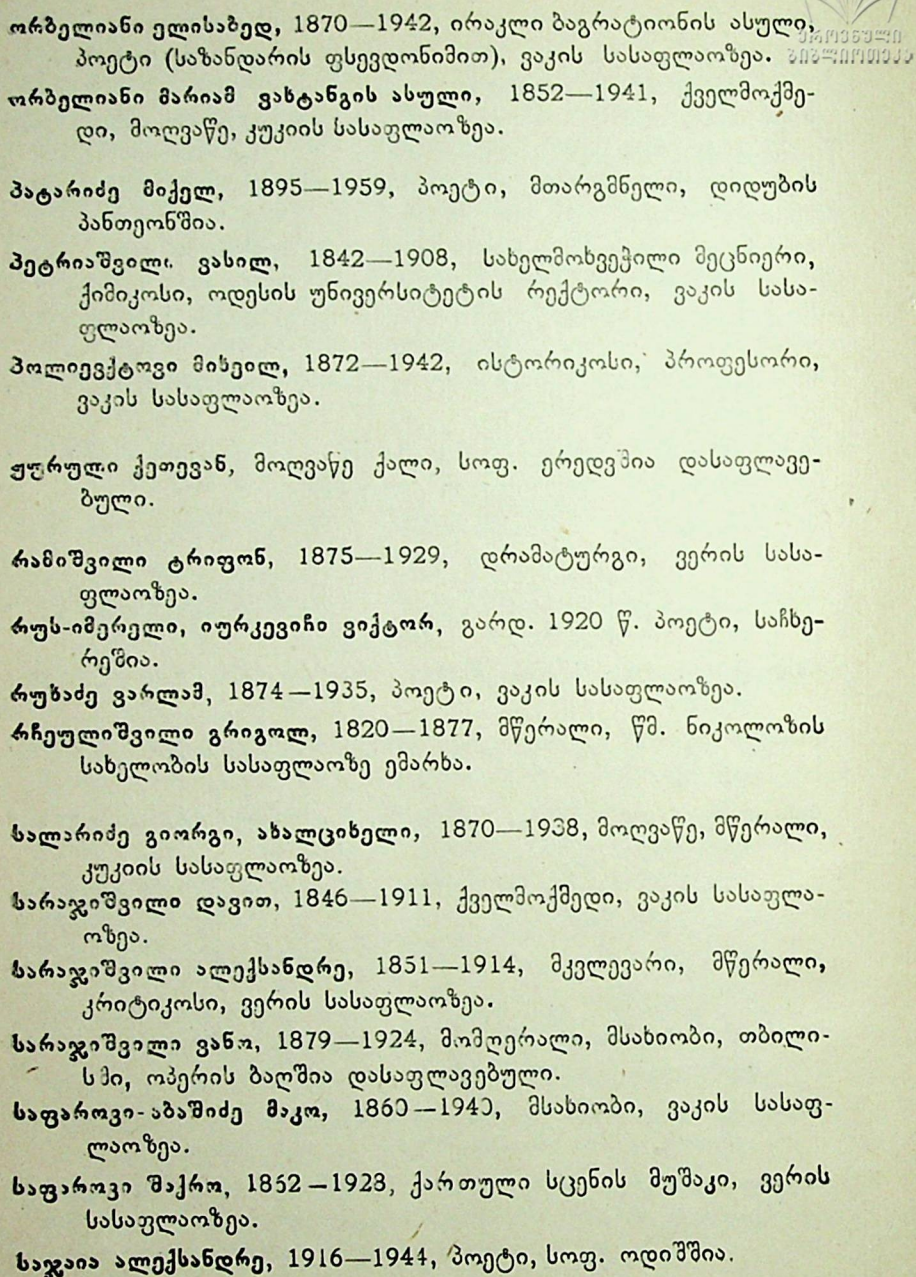 ორბელიანი ელისაბედ, 1870—1942, ირაკლი ბაგრატიონის ასული,
პოეტი (საზანდარის ფსევდონიმით), ვაკის სასაფლაოზეა.
ორბელიანი მარიამ ვახტანგის ასული, 1852—1941, ქველმოქმე-
დი, მოღვაწე, კუკიის სასაფლაოზეა.
პატარიძე მიქელ, 1895—1959, პოეტი, მთარგმნელი, დიდუბის
პანთეონშია.
პეტრიაშვილი ვასილ, 1842—1908, სახელმოხვეჭილი მეცნიერი,
ქიმიკოსი, ოდესის უნივერსიტეტის რექტორი, ვაკის სასა-
ფლაოზეა.
პოლიევქტოვი მიხეილ, 1872—1942, ისტორიკოსი, პროფესორი,
ვაკის სასაფლაოზეა.
ჟურული ქეთევან, მოღვაწე ქალი, სოფ. ერედვშია დასაფლავე-
ბული.
რამიშვილი ტრიფონ, 1875—1929, დრამატურგი, ვერის სასა-
ფლაოზეა.
რუს-იმერელი, იურკევიჩი ვიქტორ, გარდ. 1920 წ. პოეტი, საჩხე-
რეშია.
რუხაძე ვარლამ, 1874—1935, პოეტი, ვაკის სასაფლაოზეა.
რჩეულიშვილი გრიგოლ, 1820—1877, მწერალი, წმ. ნიკოლოზის
სახელობის სასაფლაოზე ემარხა.
სალარიძე გიორგი, ახალციხელი, 1870—1938, მოღვაწე, მწერალი,
კუკიის სასაფლაოზეა.
სარაჯიშვილი დავით, 1846—1911, ქველმოქმედი, ვაკის სასაფლა-
ოზეა.
სარაჯიშვილი ალექსანდრე, 1851—1914, მკვლევარი, მწერალი,
კრიტიკოსი, ვერის სასაფლაოზეა.
სარაჯიშვილი ვანო, 1879—1924, მომღერალი, მსახიობი, თბილი-
სში, ოპერის ბაღშია დასაფლავებული.
საფაროვი-აბაშიძე მაკო, 1860—1940, მსახიობი, ვაკის სასაფ-
ლაოზეა.
საფაროვი შაქრო, 1862—1928, ქართული სცენის მუშაკი, ვერის
სასაფლაოზეა.
საჯაია ალექსანდრე, 1916—1944, პოეტი, სოფ. ოდიშშია.